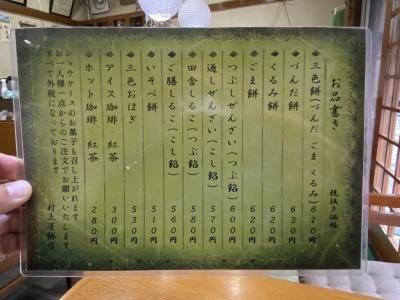 お品書き
税抜き価格
三色餅(づんだ ごま くるみ) 670円
づんだ餅 630円
くるみ餅 620円
ごま餅 620円
つぶしぜんざい(つぶ餡) 600円
通しぜんざい(こし餡) 570円
田舎しるこ(つぶ餡) 580円
ご膳しるこ(こし餡) 560円
いそべ餅 510円
三色おはぎ 530円
アイス珈琲・紅茶 300円
ホット珈琲・紅茶 280円
ショウケースのお菓子も召し上がれます
お一人様一点からのご注文でお願いいたします
すべて外税になっております
村上屋餅店